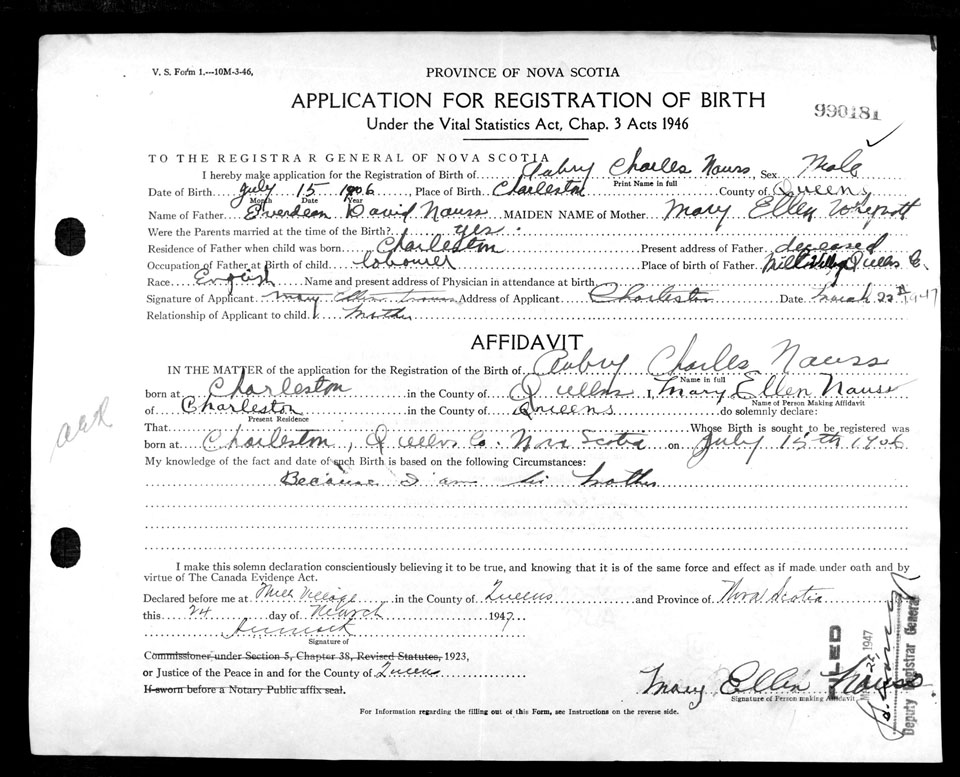 V. S. Form 1.---10M-3-46,
PROVINCE OF NOVA SCOTIA
APPLICATION FOR REGISTRATION OF BIRTH
990181
Under the Vital Statistics Act, Chap. 3 Acts 1946
TO THE REGISTRAR GENERAL OF NOVA SCOTIA
I hereby make application for the Registration of Birth of Aubry Charles Nauss, Sex Male
Print Name in full
Date of Birth July 15 1906, Place of Birth Charleston County of Queens
Month Date Year
Name of Father David Nauss MAIDEN NAME of Mother Mary Ellen
Were the Parents married at the time of the Birth? yes.
Residence of Father when child was born Charleston Present address of Father deceased
Occupation of Father at Birth of child labourer Place of birth of Father Mill Village Queens Co.
Race English Name and present address of Physician in attendance at birth
Signature of Applicant Mary Ellen Address of Applicant Charleston Date March 22 1947
Relationship of Applicant to child Mother
AFFIDAVIT
IN THE MATTER of the application for the Registration of the Birth of Aubry Charles Nauss
Name in full
born at Charleston in the County of Queens I, Mary Ellen Nauss
Name of Person Making Affidavit
of Charleston in the County of Queens do solemnly declare:
Present Residence
That Whose Birth is sought to be registered was
born at Charleston, Queens Co. Nova Scotia on July 15th 1906
My knowledge of the fact and date of such Birth is based on the following Circumstances:
Because I am his Mother
I make this solemn declaration conscientiously believing it to be true, and knowing that it is of the same force and effect as if made under oath and by
virtue of The Canada Evidence Act.
Declared before me at Mill Village in the County of Queens and Province of Nova Scotia
this 24 day of March 1947.
Signature of
Commissioner under Section 5, Chapter 38, Revised Statutes, 1923,
or Justice of the Peace in and for the County of Queens
If sworn before a Notary Public affix seal.
Mary Ellen Nauss
Signature of Person making Affidavit
FILED
1947
Deputy Registrar General
For Information regarding the filling out of this Form, see Instructions on the reverse side.